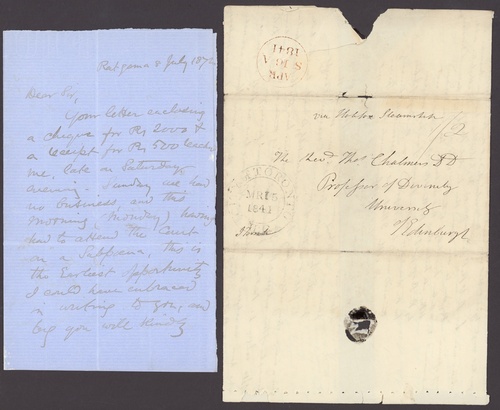 Ratgama 8 July 1872
Dear Sir,
Your letter enclosing
a cheque for Rs 2000 &
a receipt for Rs 500 reached
me, late on Saturday
evening. Sunday we had
no business, and this
morning, (Monday) having
had to attend the Court
on a Subpoena, this is
the Earliest opportunity
I could have embraced
in writing to you, and
beg you will kindly
1841
APR
via Steamship
1/2
The Revd Thos Chalmers DD
Professor of Divinity
University
of Edinburgh
MR 15
1841